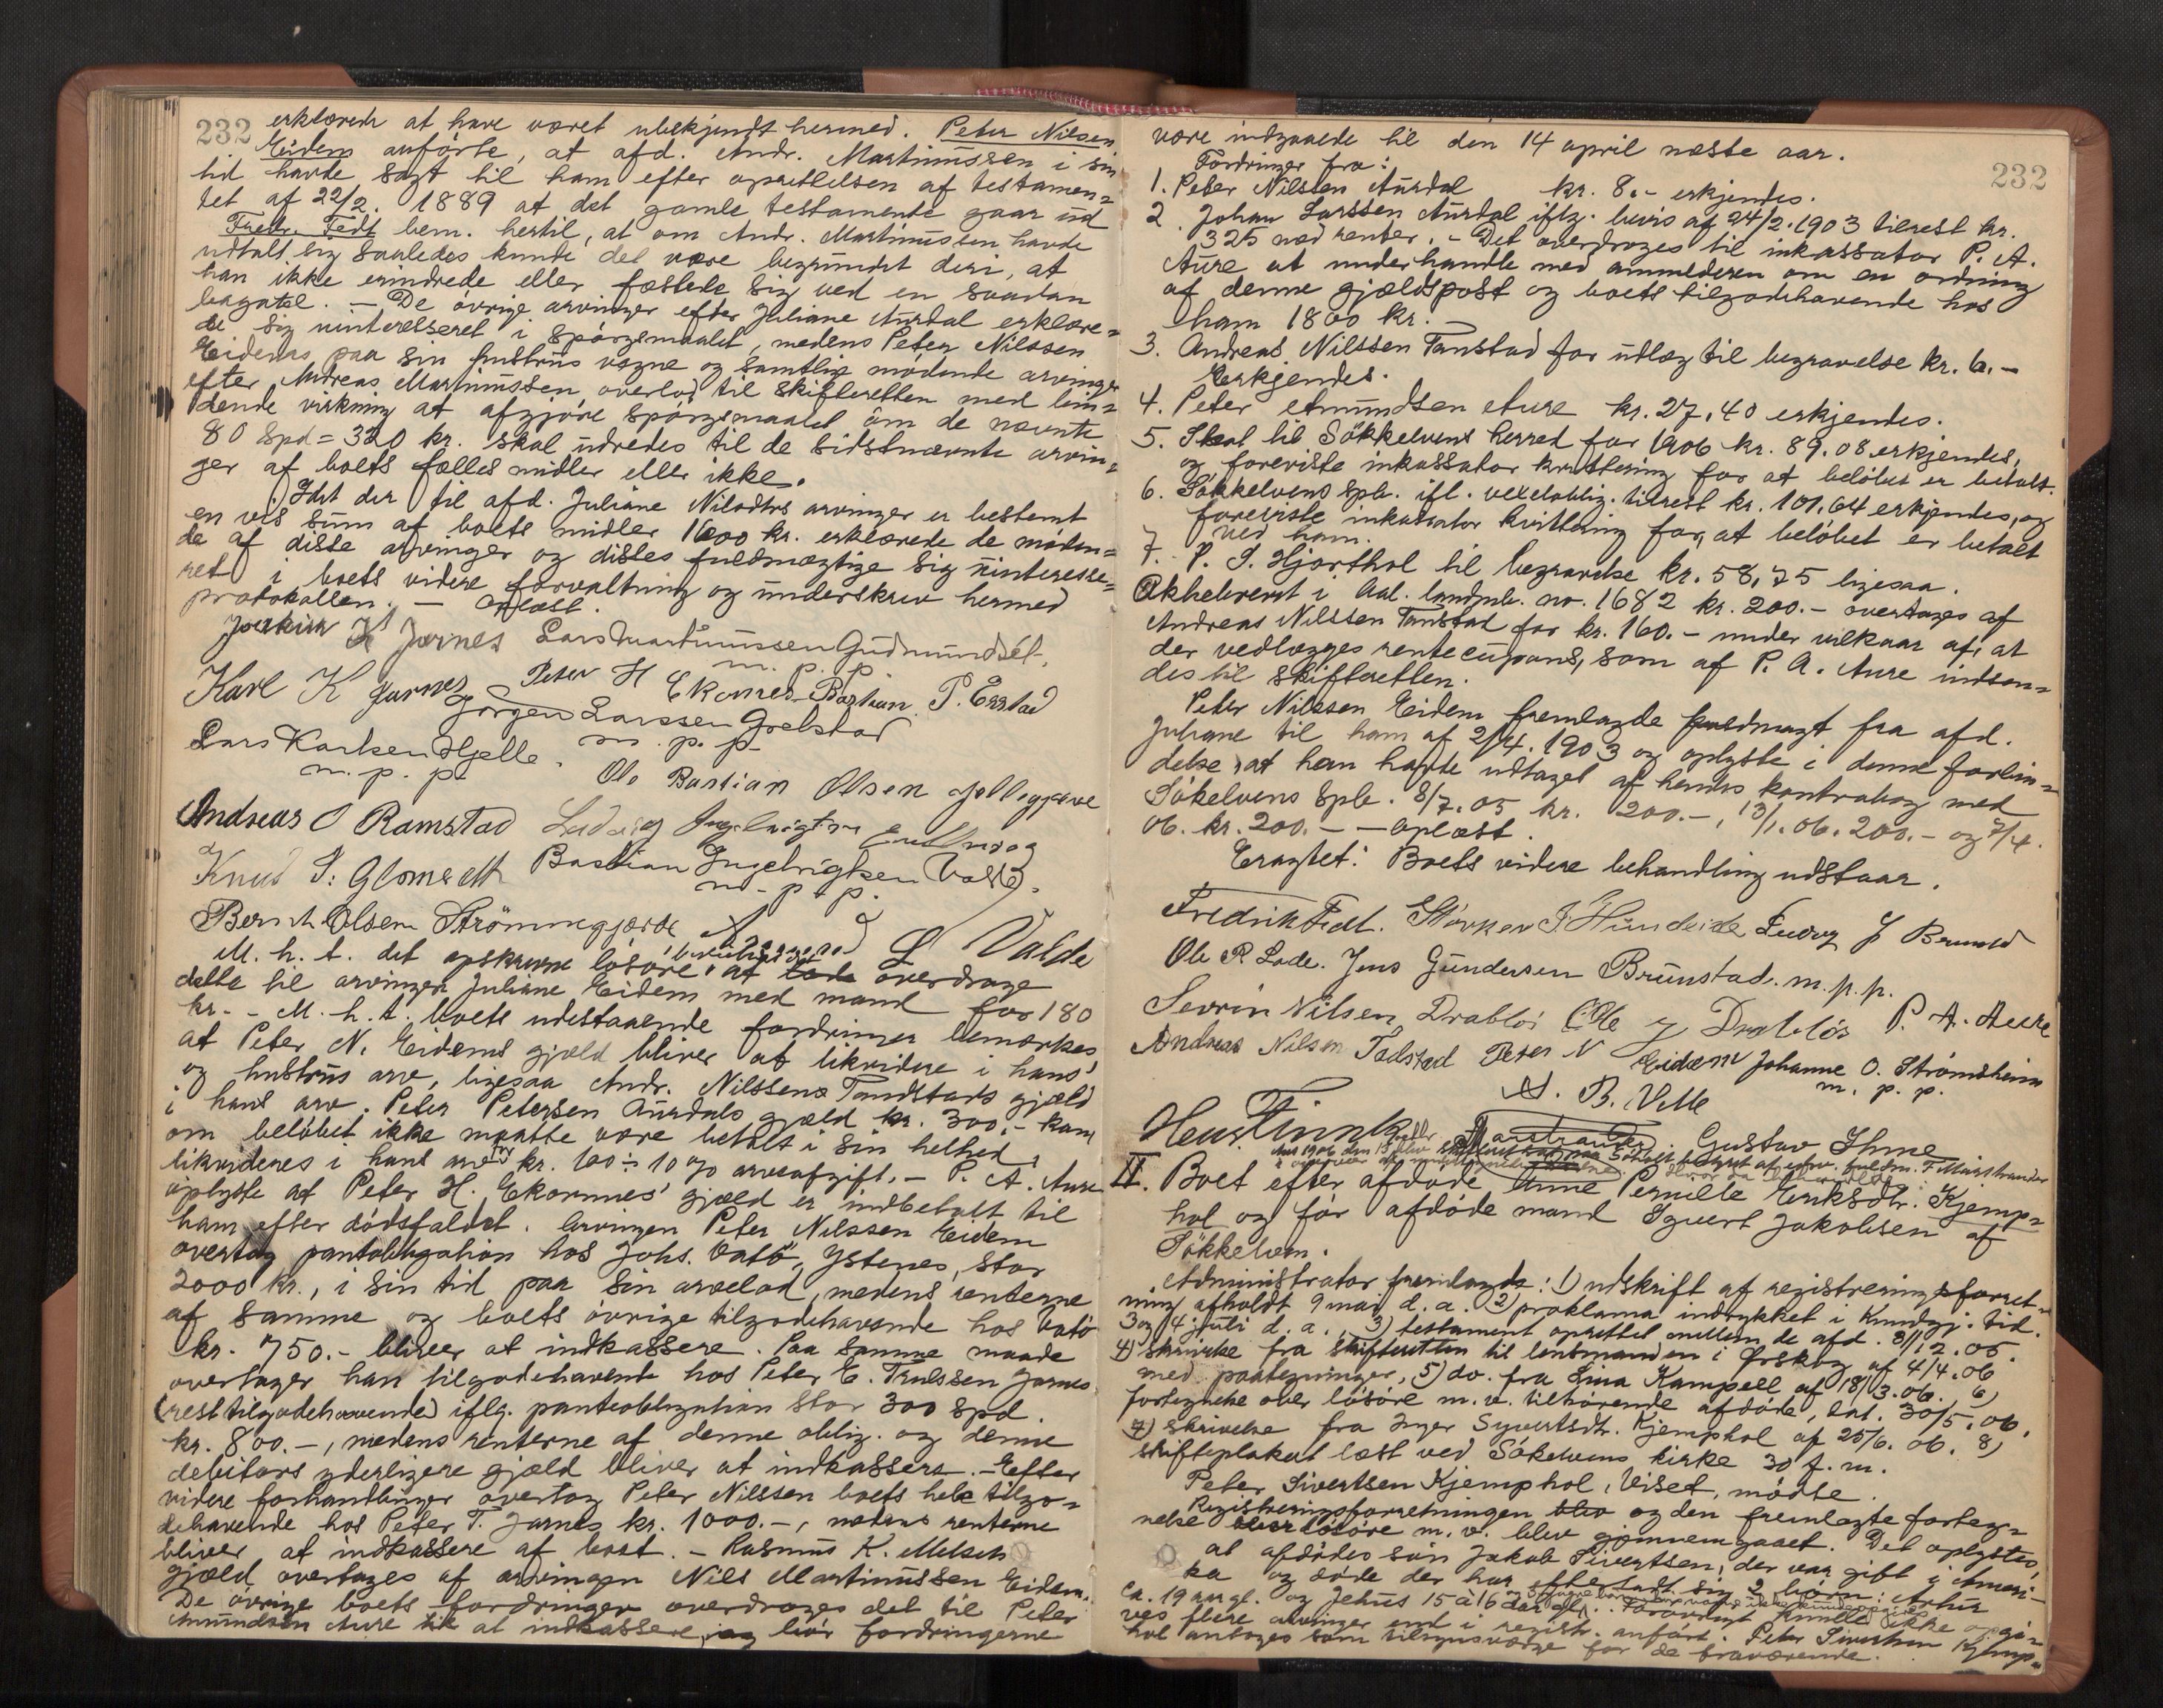 232
erklærede at have været ubekjendt hermed. Peter Nilsen
Eidem anförte, at afd. Andr. Martinussen i sin
tid havde sagt til ham efter oprettelsen af testamen=
tet af 22/2. 1889 at det gamle testamente gaar ud
Fredr. Fedt bem. hertil, at om Andr. Martinussen havde
udtalt sig saaledes kunde det være begrundet deri, at
han ikke erindrede eller fæstede sig ved en saadan
bagatel. – De övrige arvinger efter Juliane Aurdal erklære=
de sig uinteresseret i spörgsmaalet, medens Peter Nilssen
Eidems paa sin hustrus vegne og samtlige mödende arvinger
efter Andreas Martinussen overlod til skifteretten med bin=
dende virkning at afgjöre spörgsmaalet om de nævnte
80 Spd = 320 kr. skal udredes til de sidstnævnte arvin=
ger af boets fælles midler eller ikke.
Idet der til afd. Juliane Nilsdtrs arvinger er bestemt
en vis sum af boets midler 1600 kr. erklærede de möden=
de af disse arvinger og disses fuldmægtige sig uinteresse=
ret i boets videre forvaltning og underskrev hermed
protokollen. – Oplæst.
K Jarnes Lars Martinussen Gudmundset.
m. p. p.
Karl K Jarnes Peter H Ekornes Bastian P. Erstad
Jörgen Larssen Grebstad
m. p. p.
Lars Karlsen Hjelle.
m. p. p.
Ole Bastian Olsen
Andreas O Ramstad Ludvig
Knud S. Glomseth Bastian Ingebrigtsen Valle.
m. p. p.
Bernt Olsen Strömmegjærde
L Valde
M. h. t. det opskrevne lösöre at overdrage
dette til arvingen Juliane Eidem med mand for 180
kr. – M. h. t. boets udestaaende fordringer bemærkes
at Peter N. Eidems gjæld bliver at likvidere i hans
og hustrus arv, ligesaa Andr. Nilssens Tandstads gjæld
i hans arv. Peter Petersen Aurdals gjæld kr. 300.- kan
om belöbet ikke maatte være betalt i sin helhed,
likvideres i hans arv kr. 100 ÷ 10 % arveafgift. – P. A. Aure
oplyste at Peter H. Ekornnes' gjæld er indbetalt til
ham efter dödsfaldet. Arvingen Peter Nilssen Eidem
overtog pantobligation hos Johs. Vatö, Ystenes, stor
2000 kr., i sin tid paa sin arvelod, medens renterne
af samme og boets övrige tilgodehavende hos Vatö
kr. 750.- bliver at indkassere. Paa samme maade
overtager han tilgodehavende hos Peter E. Trulssen Jarnes
(rest tilgodehavende) iflg. panteobligation stor 300 spd.
kr. 800.–, medens renterne af denne oblig. og denne
debitors yderligere gjæld bliver at indkassere. – Efter
videre forhandlinger overtog Peter Nilssen boets hele tilgo=
dehavende hos Peter T. Jarnes kr. 1000.–, medens renterne
bliver at indkassere af boet. – Rasmus K. Melseth
gjæld overtages af arvingen Nils Martinussen Eidem.
De övrige boets fordringer overdrages det til Peter
Amundsen Aure til at indkassere, og bör fordringerne
232
være indgaaede til den 14 april næste aar.
Fordringer fra:
1. Peter Nilsen Aurdal kr. 8.- erkjendes.
2. Johan Larssen Aurdal iflg. bevis af 24/2. 1903 tilrest kr.
325 med renter. – Det overdrages til inkassator P. A.
Aure at underhandle med anmelderen om en ordning
af denne gjældspost og boets tilgodehavende hos
ham 1800 kr.
3. Andreas Nilssen Tanstad for udlæg til begravelse kr. 6.–
Erkjendes.
4. Peter Amundsen Aure kr. 27.40 erkjendes.
5. Skat til Sökkelvens herred for 1906 kr. 89.08 erkjendes,
og foreviste inkassator kvittering for at belöbet er betalt.
6. Sökkelvens spb. ifl. vexeloblig. tilrest kr. 101.64 erkjendes, og
foreviste inkassator kvittering for, at belöbet er betalt
ved ham.
7. P. S. Hjorthol til begravelse kr. 58,75 ligesaa.
Aktiebrevet i Aal. landmb. no. 1682 kr. 200.– overtages af
Andreas Nilssen Tanstad for kr. 160.– under vilkaar af, at
der vedlægges rentecupons, som af P. A. Aure indsen=
des til skifteretten.
Peter Nilssen Eidem fremlagde fuldmagt fra afd.
Juliane til ham af 2/4. 1903 og oplyste i denne forbin=
delse, at han havde udtaget af hendes kontrabog med
Sökelvens Spb. 8/7. 05 kr. 200.–, 13/1. 06. 200.– og 7/4.
06. kr. 200.– – Oplæst.
Eragtet: Boets videre behandling udstaar.
Fredrik Fedt. Störker F. Hundeide Ludvg J Brunstad
Ole R Lade. Jens Gundersen Brunstad. m. p. p.
Sevrin Nilsen Drablös Ole J Drablös P. A. Aure
Andreas Nilsen Tadstad Peter N Eidem Johanne O. Strömsheim
m. p. p.
A. B. Velle
Gustav Ihme
II. Boet efter afdöde Anne Pernille Eriksdtr. Kjemp=
hol og för afdöde mand Syvert Jakobsen af
Sökkelven.
Administrator fremlagde: 1) udskrift af registreringsforret=
ning afholdt 9 mai d. a. 2) proklama indrykket i Kundgj. tid.
3 og 4 juli d. a., 3) testament oprettet mellem de afd. 8/12. 05.
4) skrivelse fra skifteretten til lensmanden i Örskog af 4/4. 06
med paategninger, 5) do. fra Lina Kampell af 18/3. 06. 6)
fortegnelse over lösöre m. v. tilhörende afdöde, dat. 30/5. 06.
7) skrivelse fra Inger Syvertsdtr. Kjemphol af 25/6. 06. 8)
skifteplakat læst ved Sökelvens kirke 30 f. m.
Peter Sivertsen Kjemphol, Viset, mödte.
Registreringsforretningen blev og den fremlagte forteg=
nelse over lösöre m. v. blev gjennemgaaet. Det oplystes,
at afdödes sön Jakob Sivertsen, der var gift i Ameri=
ka og döde der har efterladt sig 2 börn: Arthur
ca. 19 aar gl. og Jehus 15 à 16 aar gl. Forövrigt kunde ikke opgi=
ves flere arvinger end i registr. anfört. Peter Sivertsen Kjemp=
hol antages som tilsynsværge for de fraværende.